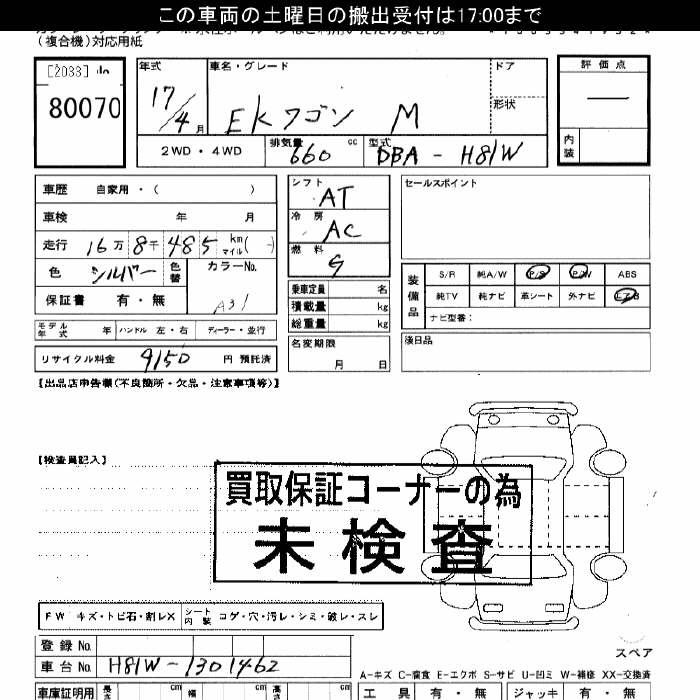 この車両の土曜日の搬出受付は17:00まで
(複合機)対応用紙
[2033]
80070
年式 17/4月
車名・グレード EKワゴン M
ドア
形状
評価点
―
内装
2WD・4WD
排気量 660 cc
型式 DBA-H81W
車歴 自家用・( )
車検 年 月
走行 16万8千485 km マイル( - )
色 シルバー 色替
カラーNo. A31
保証書 有・無
モデル年式 年 ハンドル 左・右 ディーラー・並行
リサイクル料金 9150 円 預託済
シフト AT
冷房 AC
燃料 G
乗車定員 名
積載量 kg
総重量 kg
名変期限 月 日
セールスポイント
装備品
S/R 純A/W P/S P/W ABS
純TV 純ナビ 革シート 外ナビ エアB
ナビ型番:
後日品
【出品店申告欄(不良箇所・欠品・注意事項等)】
【検査員記入】
買取保証コーナーの為
未検査
FW キズ・トビ石・割レX シート内装 コゲ・穴・汚レ・シミ・破レ・スレ
登録No.
車台No. H81W-1301462
スペア
A-キズ C-腐食 E-エクボ S-サビ U-凹ミ W-補修 XX-交換済
車庫証明用 長さ cm 幅 cm 高さ cm
工具 有・無 ジャッキ 有・無